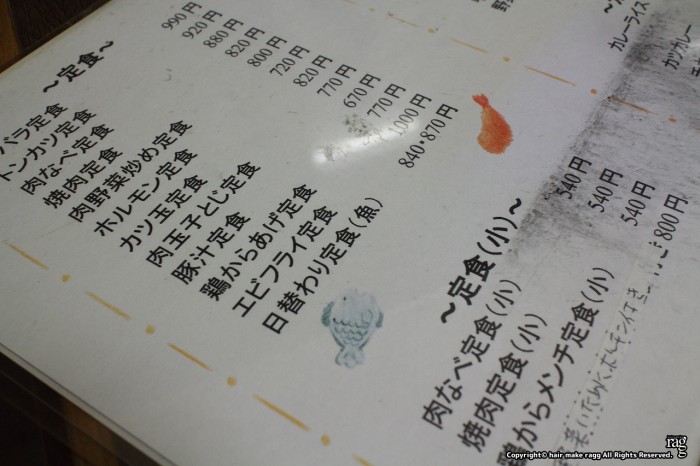 ～定食～
バラ定食
トンカツ定食
肉なべ定食
焼肉定食
肉野菜炒め定食
ホルモン定食
カツ玉定食
肉玉子とじ定食
豚汁定食
鶏からあげ定食
エビフライ定食
日替わり定食(魚)
990円
920円
880円
820円
800円
720円
820円
770円
670円
770円
1,000円
840・870円
～定食(小)～
肉なべ定食(小)
焼肉定食(小)
鶏からメンチ定食(小)
540円
540円
540円
800円
カレーライス
カツカレー
rag
Copyright© hair make ragg All Rights Reserved.